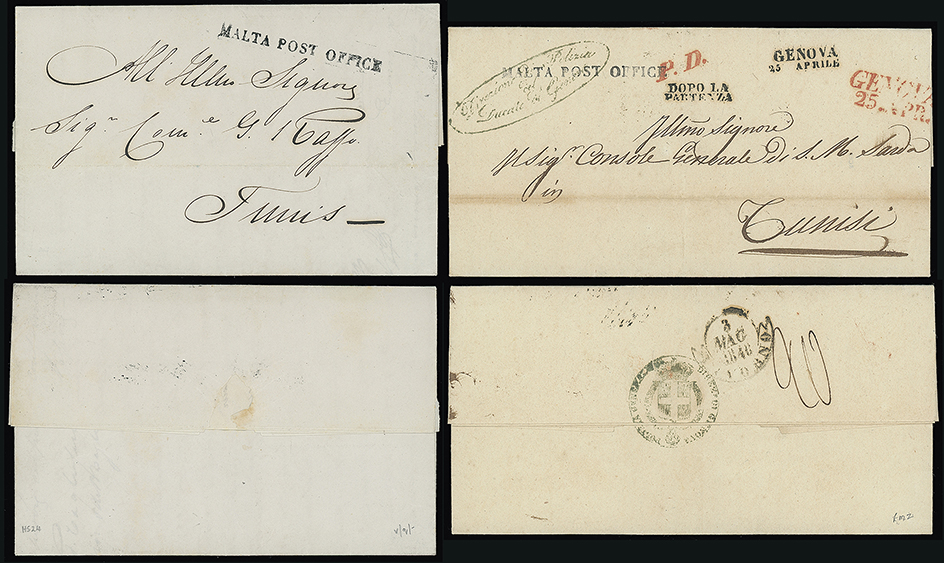 MALTA POST OFFICE
All' Illmo Signore
Sigr Come G. Raffo
Tunis
Direzione di Polizia
del
Ducato di Genova
MALTA POST OFFICE
P. D.
DOPO LA
PARTENZA
GENOVA
25 APRILE
GENOVA
25 APR.
Illmo Signore
Il Sigr Console Generale di S. M. Sarda
in
Tunisi
HS24
3
MAG
1848
LIVORNO
20
£m2